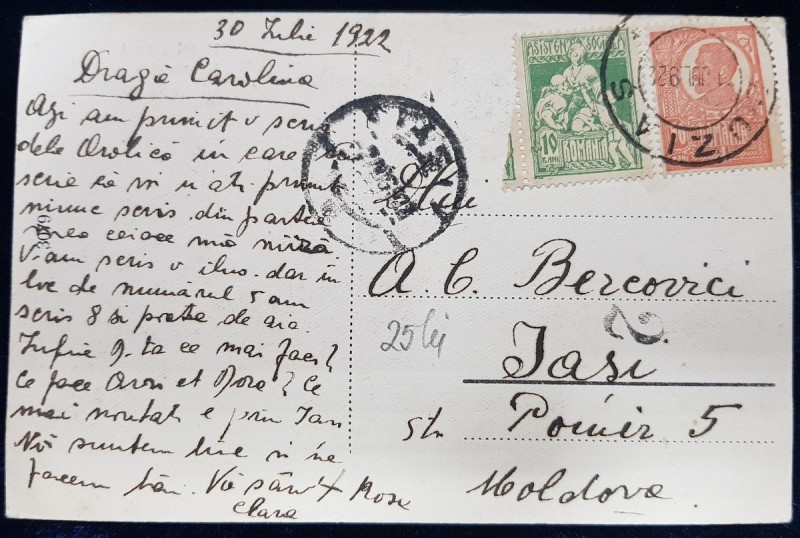 30 Iulie 1922
Dragă Carolina
Azi am primit o scri
dela Orolică în care
scrie că voi n ați primit
nimic scris din partea
mea ceiace mă miră
V-am scris o ilus. dar în
loc de numărul 5 am
scris 8 și poate de aia.
Iubire D-ta ce mai faci?
Ce face Aron et Dora? Ce
mai noutăți e prin Iași
Noi suntem bine și ne
facem băi. Vă sărut Rosa
Clara
3079
ASISTENȚA SOCIALĂ
10 BANI
ROMANIA
D-lui
A. C. Bercovici
25 lei
2
Iași
str Pomir 5
Moldova